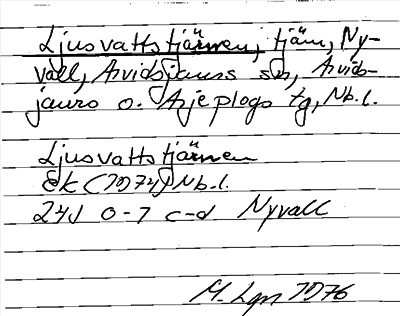 Ljusvattstjärnen, tjärn, Ny-
vall, Arvidsjaurs sn, Arvids-
jaurs o. Arjeplogs tg, Nb.l.
Ljusvattstjärnen
Ek (1974) Nb.l.
24J 0-1 c-d Nyvall
M. Lgn 1976